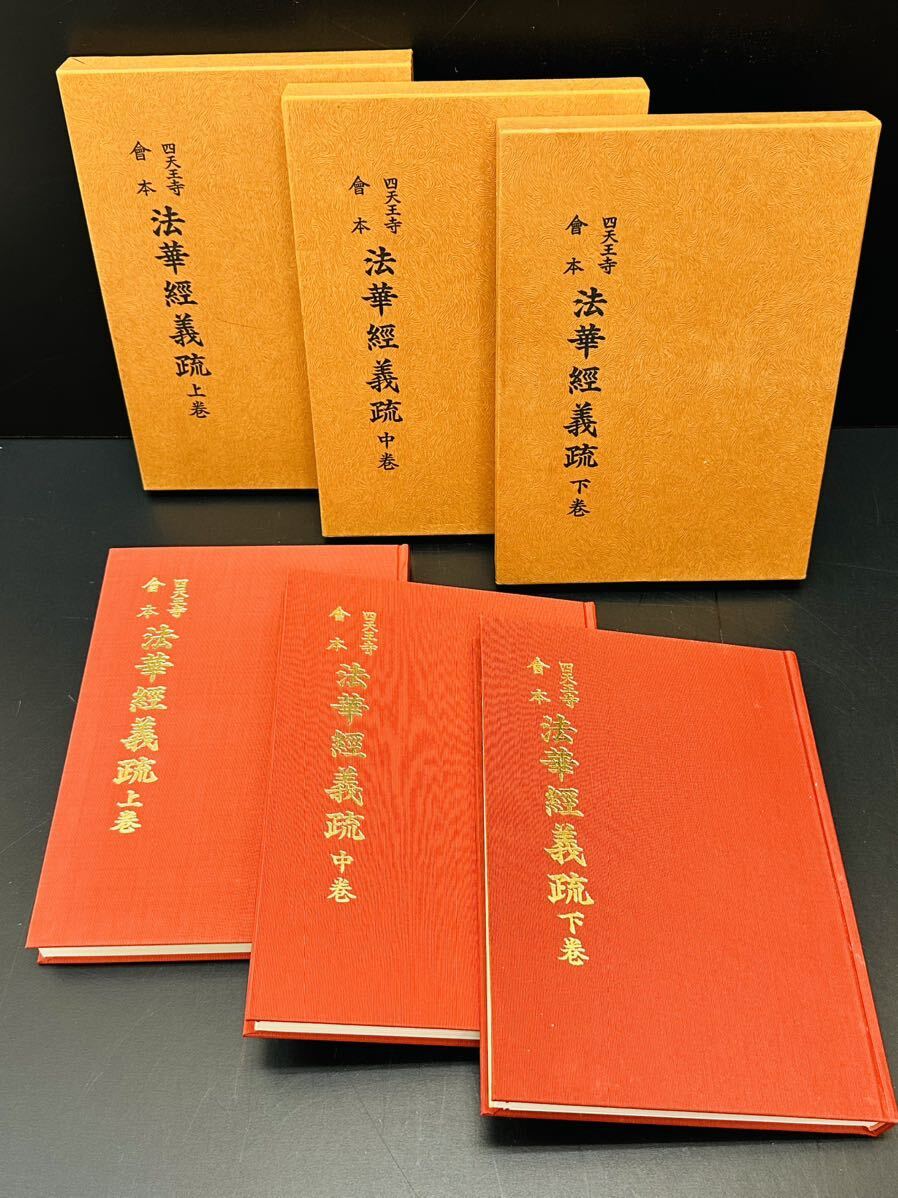 四天王寺
會本
法華經義疏 上巻
四天王寺
會本
法華經義疏 中巻
四天王寺
會本
法華經義疏 下巻
四天王寺
會本
法華經義疏 上巻
四天王寺
會本
法華經義疏 中巻
四天王寺
會本
法華經義疏 下巻